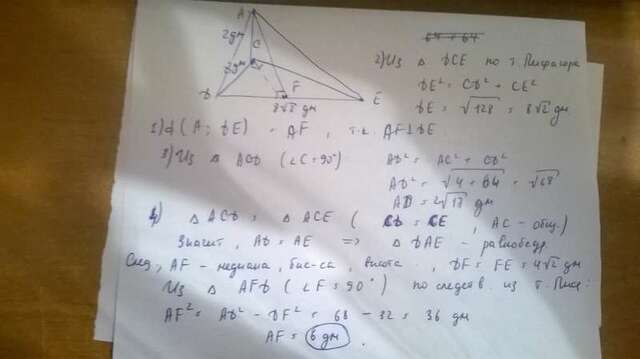 A
2 дм
C
D
F
E
8√2 дм
2) Из △ DCE по т. Пифагора
DE² = CD² + CE²
DE = √128 = 8√2 дм
1) d (A; DE) = AF, т.к. AF⊥DE.
3) Из △ ACD (∠C=90°)
AD² = AC² + CD²
AD² = √4 + 64 = √68
AD = 2√17 дм
4) △ ACD = △ ACE ( CD = CE, AC - общ.)
Значит, AD = AE => △ DAE - равнобедр.
След, AF - медиана, бис-са, высота., DF = FE = 4√2 дм
Из △ AFD (∠F = 90°) по следств. из т. Пиф:
AF² = AD² - DF² = 68 - 32 = 36 дм
AF = 6 дм.